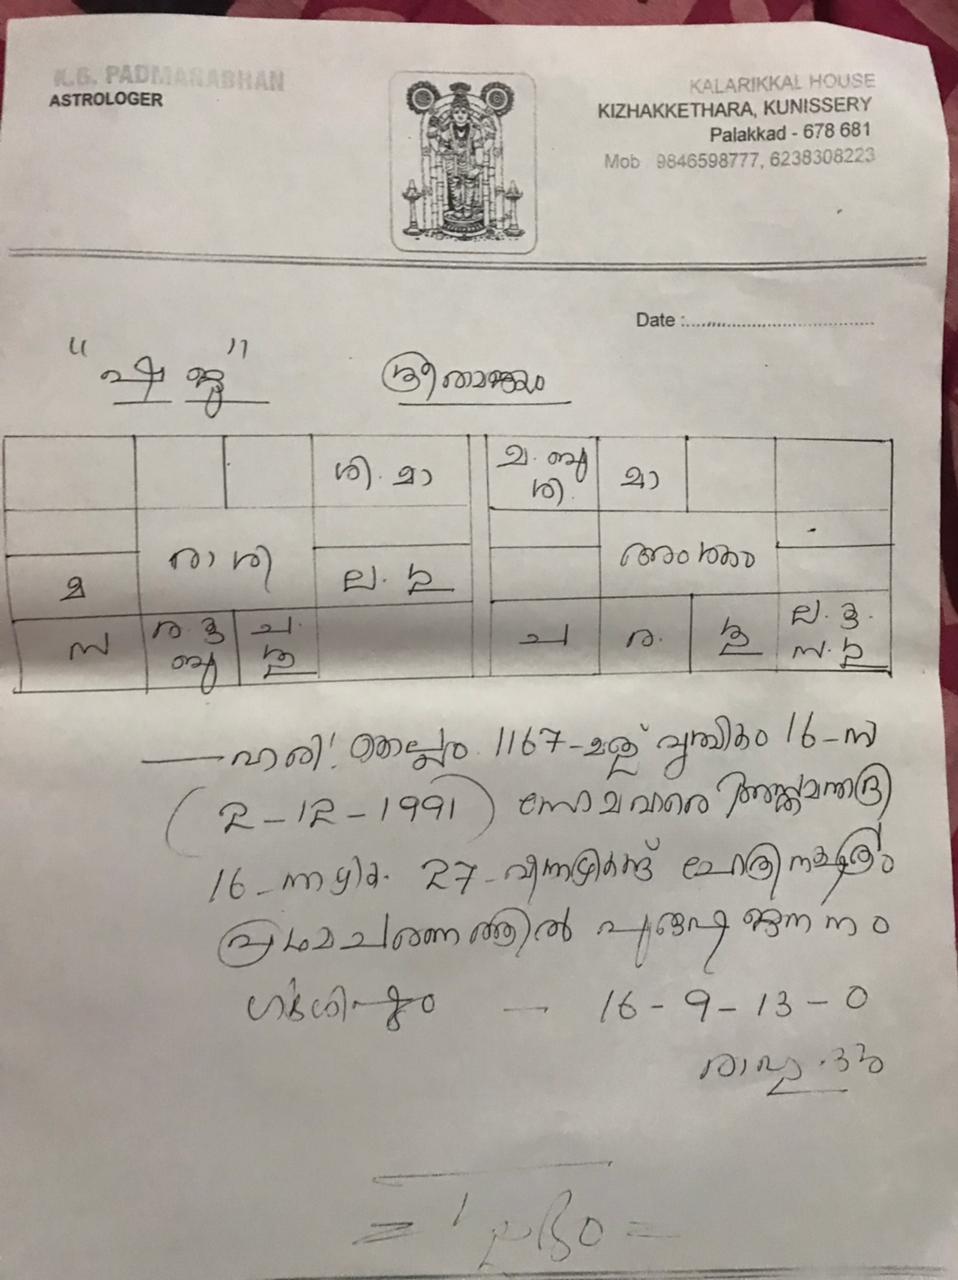 K.G. PADMANABHAN
ASTROLOGER
KALARIKKAL HOUSE
KIZHAKKETHARA, KUNISSERY
Palakkad - 678 681
Mob 9846598777, 6238308223
Date :
"ഷൈജു"
ശി. മാ
രാശി
മ
ല.
സ
ര.
ബു
ച.
ച. ബു
ശി.
മാ
അംശകം
ച
ര.
ല.
സ.
ഹരി! കൊല്ലം 1167-മാണ്ട് വൃശ്ചികം 16-നു
(2-12-1991) സോമവാരെ അസ്തമനാദി
16-നാഴിക 27-വിനാഴികക്ക് ചോതി നക്ഷത്രം
പ്രഥമചരണത്തിൽ പുരുഷജനനം
ഗർഭശിഷ്ടം — 16-9-13-0
രാഹു
ശുഭം